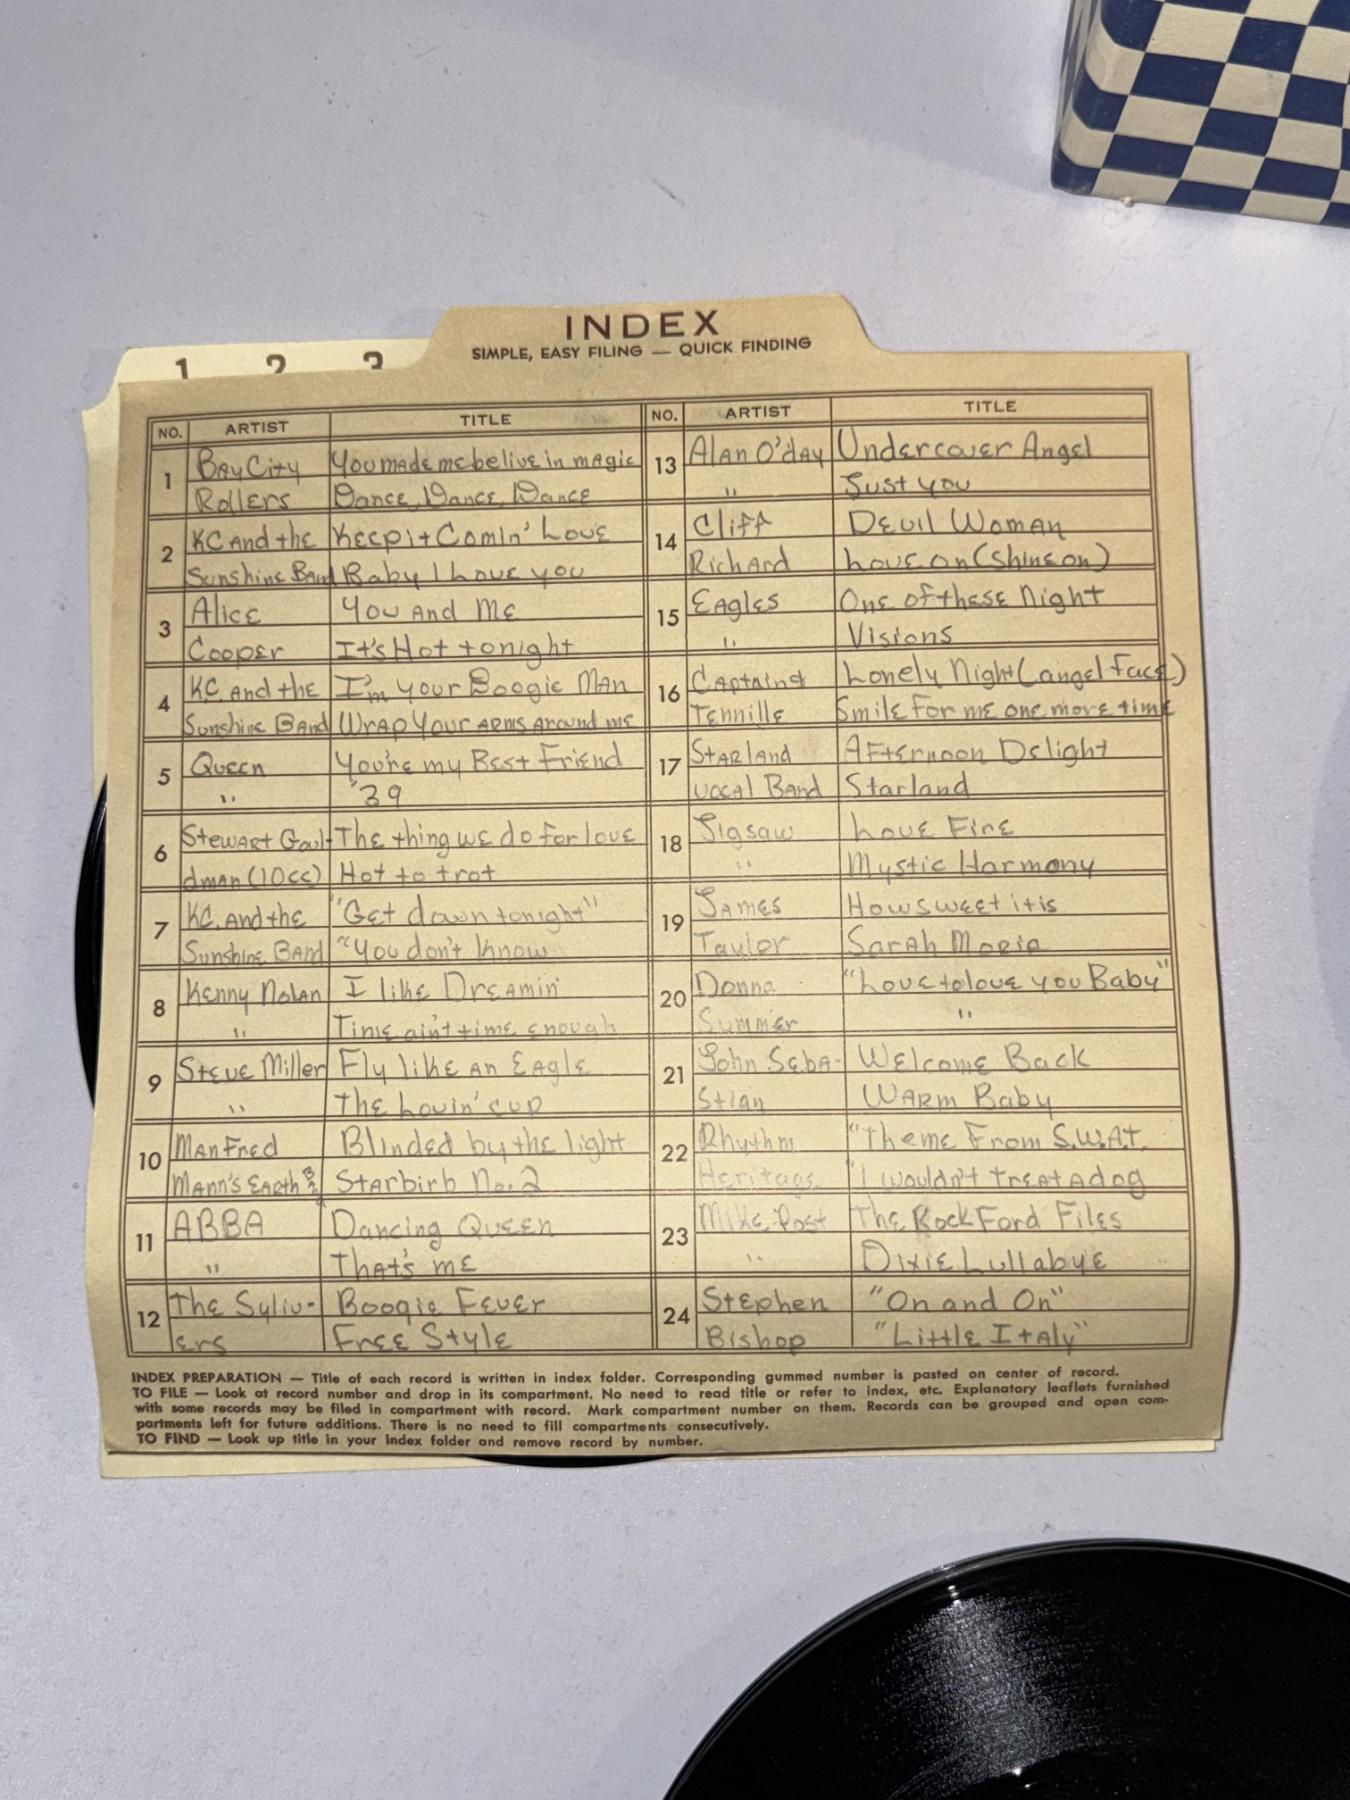 1 2 3
INDEX
SIMPLE, EASY FILING — QUICK FINDING
NO. ARTIST TITLE
1 Bay City You made me belive in magic
Rollers Dance, Dance, Dance
2 KC And the Keep it Comin' Love
Sunshine Band Baby I Love you
3 Alice You And Me
Cooper It's Hot tonight
4 KC. And the I'm your Boogie Man
Sunshine Band Wrap Your arms around me
5 Queen You're my Best Friend
" '39
6 Stewart Goul- The thing we do for love
dman (10cc) Hot to trot
7 KC. And the "Get down tonight"
Sunshine Band "You don't know
8 Kenny Nolan I like Dreamin'
" Time ain't time enough
9 Steve Miller Fly like An Eagle
" The Lovin' cup
10 ManFred Blinded by the light
Mann's Earth Starbirb No. 2
11 ABBA Dancing Queen
" That's me
12 The Syliv- Boogie Fever
ers Free Style
NO. ARTIST TITLE
13 Alan O'day Undercover Angel
" Just you
14 Cliff Devil Woman
Richard Love on (Shine on)
15 Eagles One of these Night
" Visions
16 Captain & Lonely Night (angel face)
Tennille Smile for me one more time
17 Starland Afternoon Delight
vocal Band Starland
18 Jigsaw Love Fire
" Mystic Harmony
19 James How sweet it is
Taylor Sarah Maria
20 Donna "Love to love you Baby"
Summer "
21 John Seba- Welcome Back
Stian Warm Baby
22 Rhythm "Theme From S.W.A.T.
Heritage "I wouldn't treat a dog
23 Mike Post The RockFord Files
" Dixie Lullabye
24 Stephen "On and On"
Bishop "Little Italy"
INDEX PREPARATION — Title of each record is written in index folder. Corresponding gummed number is pasted on center of record.
TO FILE — Look at record number and drop in its compartment. No need to read title or refer to index, etc. Explanatory leaflets furnished
with some records may be filed in compartment with record. Mark compartment number on them. Records can be grouped and open com-
partments left for future additions. There is no need to fill compartments consecutively.
TO FIND — Look up title in your index folder and remove record by number.